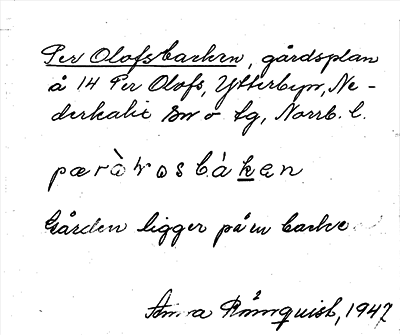 Per Olofsbacken, gårdsplan
å 14 Per Olofs, Ytterbyn, Ne-
derkalix sn o tg, Norrb. l.
Gården ligger på en backe
Anna Rönnquist, 1947